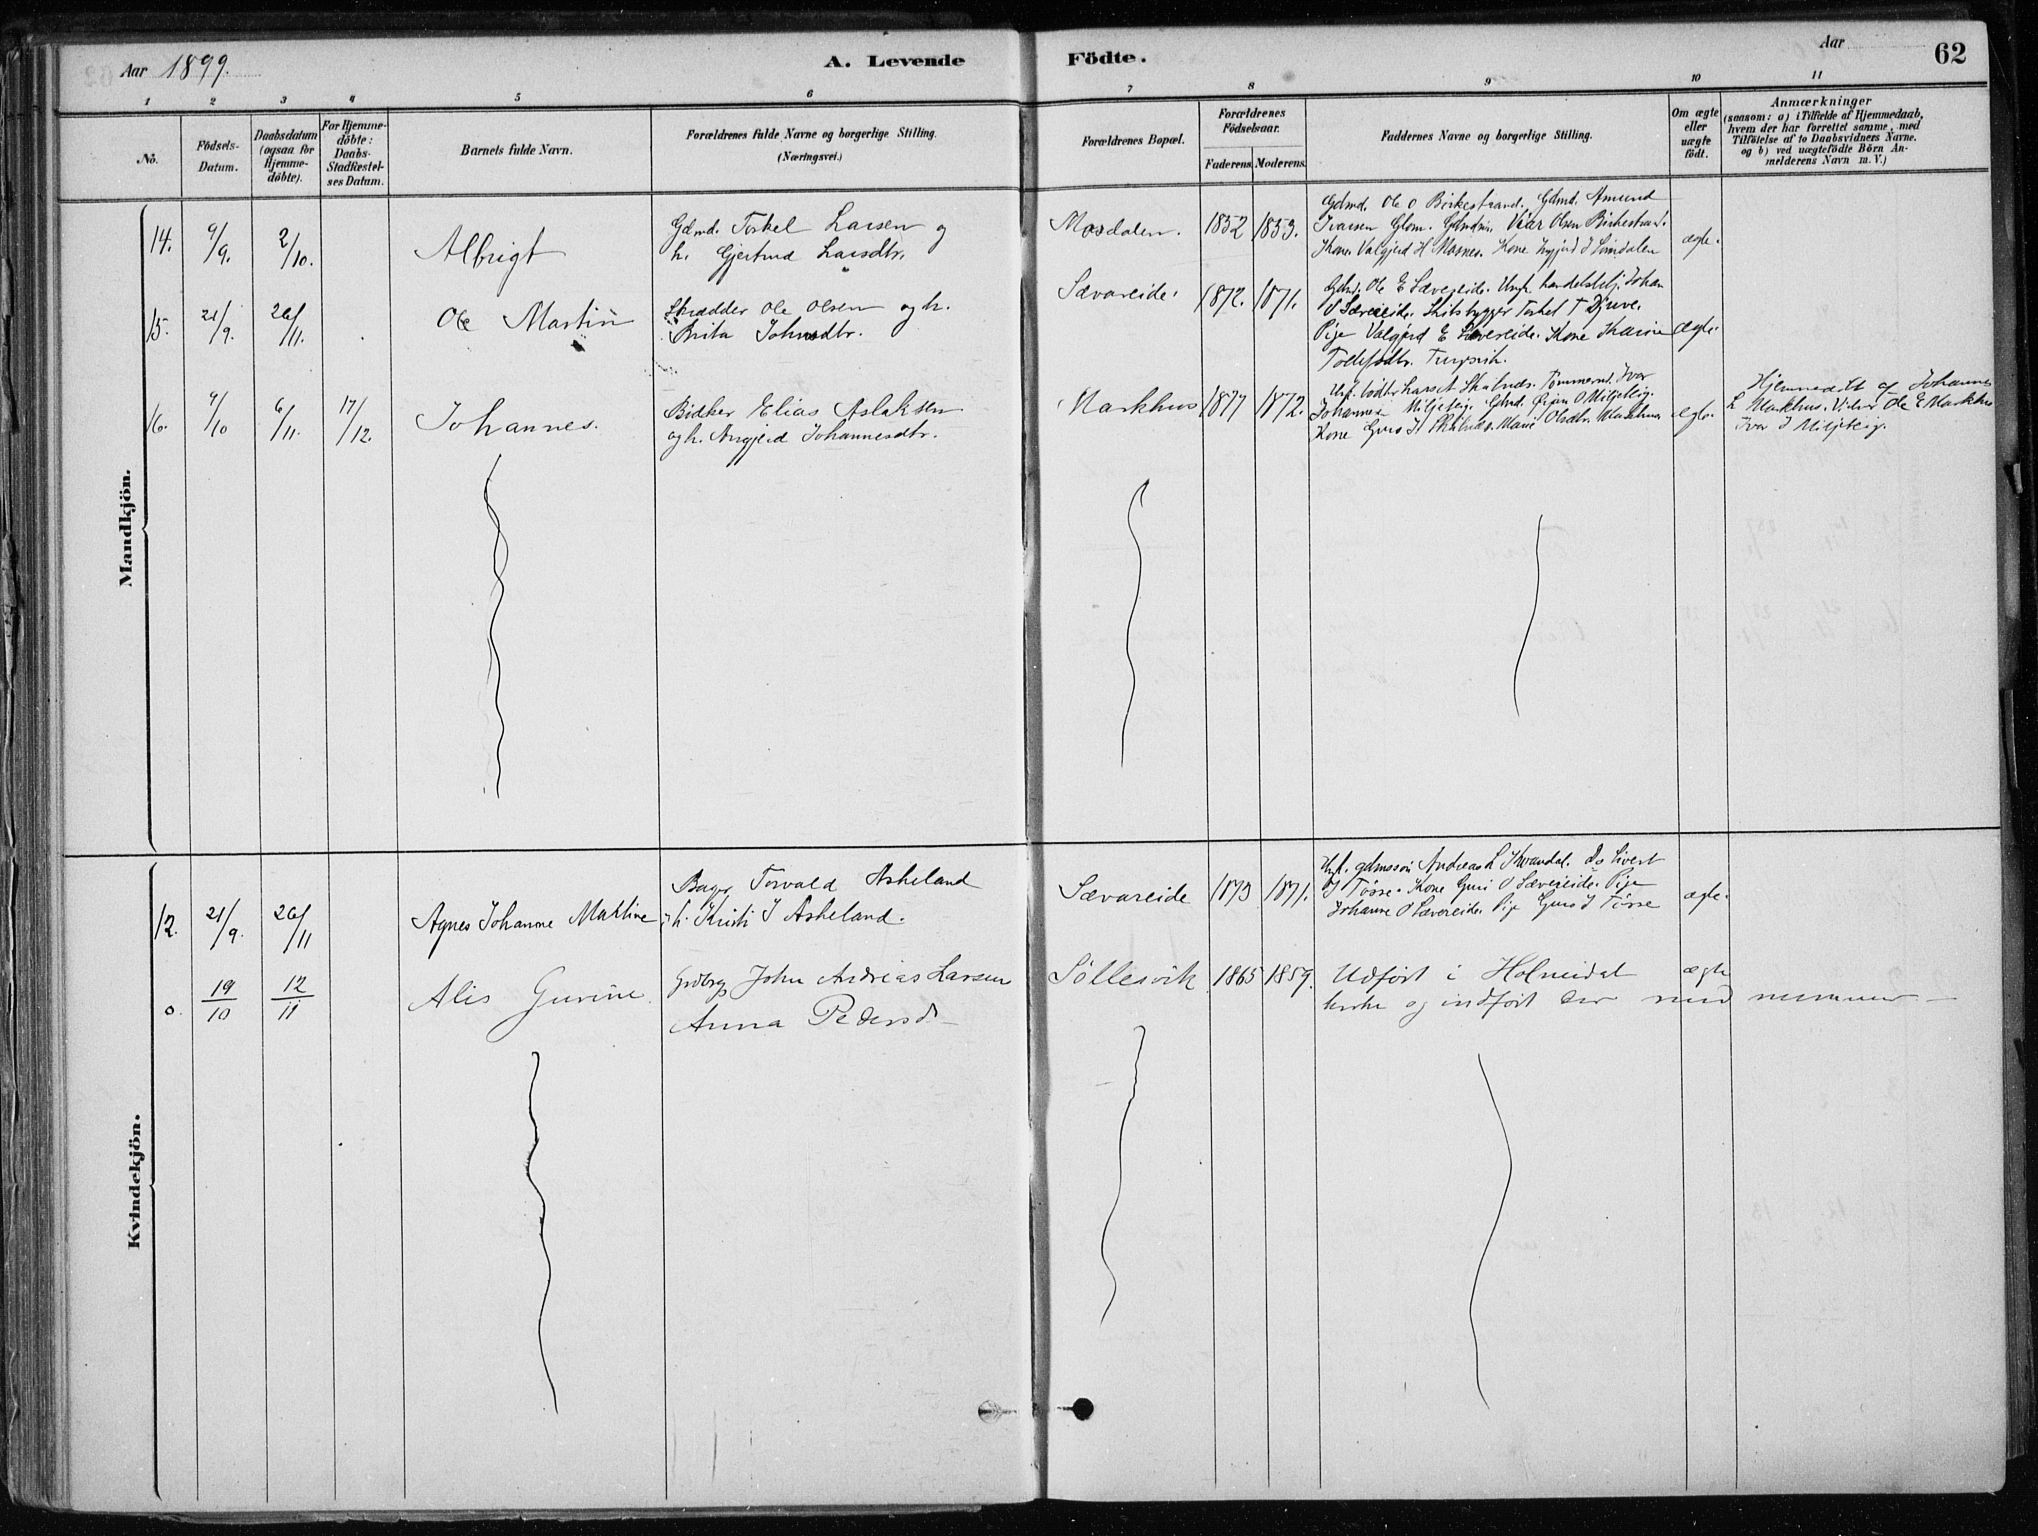 Aar 1899.
A. Levende
Födte.
Aar
62
1 2 3 4 5 6 7 8 9 10 11
No.
Födsels-
Datum.
Daabsdatum
(ogsaa for
Hjemme-
döbte).
For Hjemme-
döbte:
Daabs-
Stadfæstel-
ses Datum.
Barnets fulde Navn.
Forældrenes fulde Navne og borgerlige Stilling.
(Næringsvei.)
Forældrenes Bopæl.
Forældrenes
Födselsaar.
Faderens. Moderens.
Faddernes Navne og borgerlige Stilling.
Om ægte
eller
uægte
født.
Anmærkninger
(saasom: a) i Tilfælde af Hjemmedaab,
hvem der har forrettet samme, med
Tilföielse af to Daabsvidners Navne.
og b) ved uægtefödte Börn An-
melderens Navn m. V.)
Mandkjön.
14. 9/9. 2/10. Albrigt
Gdmd. Torkel Larsen og
h. Gjertrud Larsdtr.
Mosdalen. 1852 1853.
Gdmd. Ole O Birkestrand. Gdmd. Amund
Ivarsen Glom. Gdmdsøn Olsen Birkestrand.
Kone Valgjerd H Mosnes. Kone
ægte.
15. 21/9. 26/11. Ole Martin
Skrædder Ole Olsen og h.
Brita Johnsdtr.
Sævareide. 1872. 1871.
Gdmd. Ole E Sævereide. Ungk. Johan
O Sævereide. Skibsbygger Torkel T Djuve.
Pige Valgjerd E Sævereide. Kone Karine
Tollefsdtr.
ægte.
16. 9/10 6/11. 17/12. Johannes.
Bødker Elias Aslaksen
og h. Angjerd Johannesdtr.
Markhus 1877 1872.
Ivar
Johannes Miljeteig. Gdmd. Ørjan O Miljeteig.
Kone Guro Marie Olsdtr. Markhus
ægte.
Hjemmedøbt af Johannes
L Markhus. Vidner Ole E Markhus
Ivar J Miljeteig.
Kvindekjön.
12. 21/9. 26/11 Agnes Johanne Maktine
Bager Torvald Askeland
h. Kristi J Askeland.
Sævareide 1873 1871.
Ungk. gdmssøn Andreas L Kvandal. Do Sivert
J Tösse. Kone Guri O Sævereide. Pige
Johanne O Sævereide. Pige Guro J Tösse
ægte.
0. 19/10 12/11 Alis Gurine.
Grdbrg John Andreas Larsen
Anna Pedersd.
Söllesvik 1865 1859.
Udført i Holmedal
kirke og indført der med nummer —
ægte